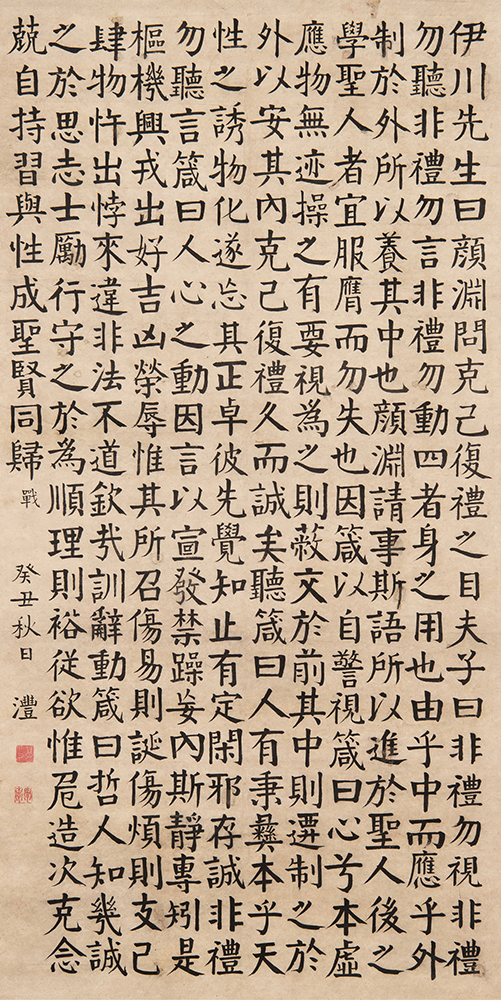 伊川先生曰顏淵問克己復禮之目夫子曰非禮勿視非禮
勿聽非禮勿言非禮勿動四者身之用也由乎中而應乎外
制於外所以養其中也顏淵請事斯語所以進於聖人後之
學聖人者宜服膺而勿失也因箴以自警視箴曰心兮本虛
應物無迹操之有要視為之則蔽交於前其中則遷制之於
外以安其內克己復禮久而誠矣聽箴曰人有秉彝本乎天
性之誘物化遂忘其正卓彼先覺知止有定閑邪存誠非禮
勿聽言箴曰人心之動因言以宣發禁躁妄內斯靜專矧是
樞機興戎出好吉凶榮辱惟其所召傷易則誕傷煩則支己
肆物忤出悖來違非法不道欽哉訓辭動箴曰哲人知幾誠
之於思志士勵行守之於為順理則裕從欲惟危造次克念
兢自持習與性成聖賢同歸 戰 癸丑秋日 灃